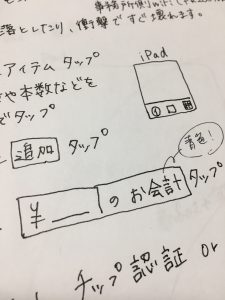 落としたり、衝撃ですぐ壊れます。
iPad
アイテム タップ
や本数などを
タップ
追加 タップ
青色!
¥__ のお会計 タップ
チップ 認証 or